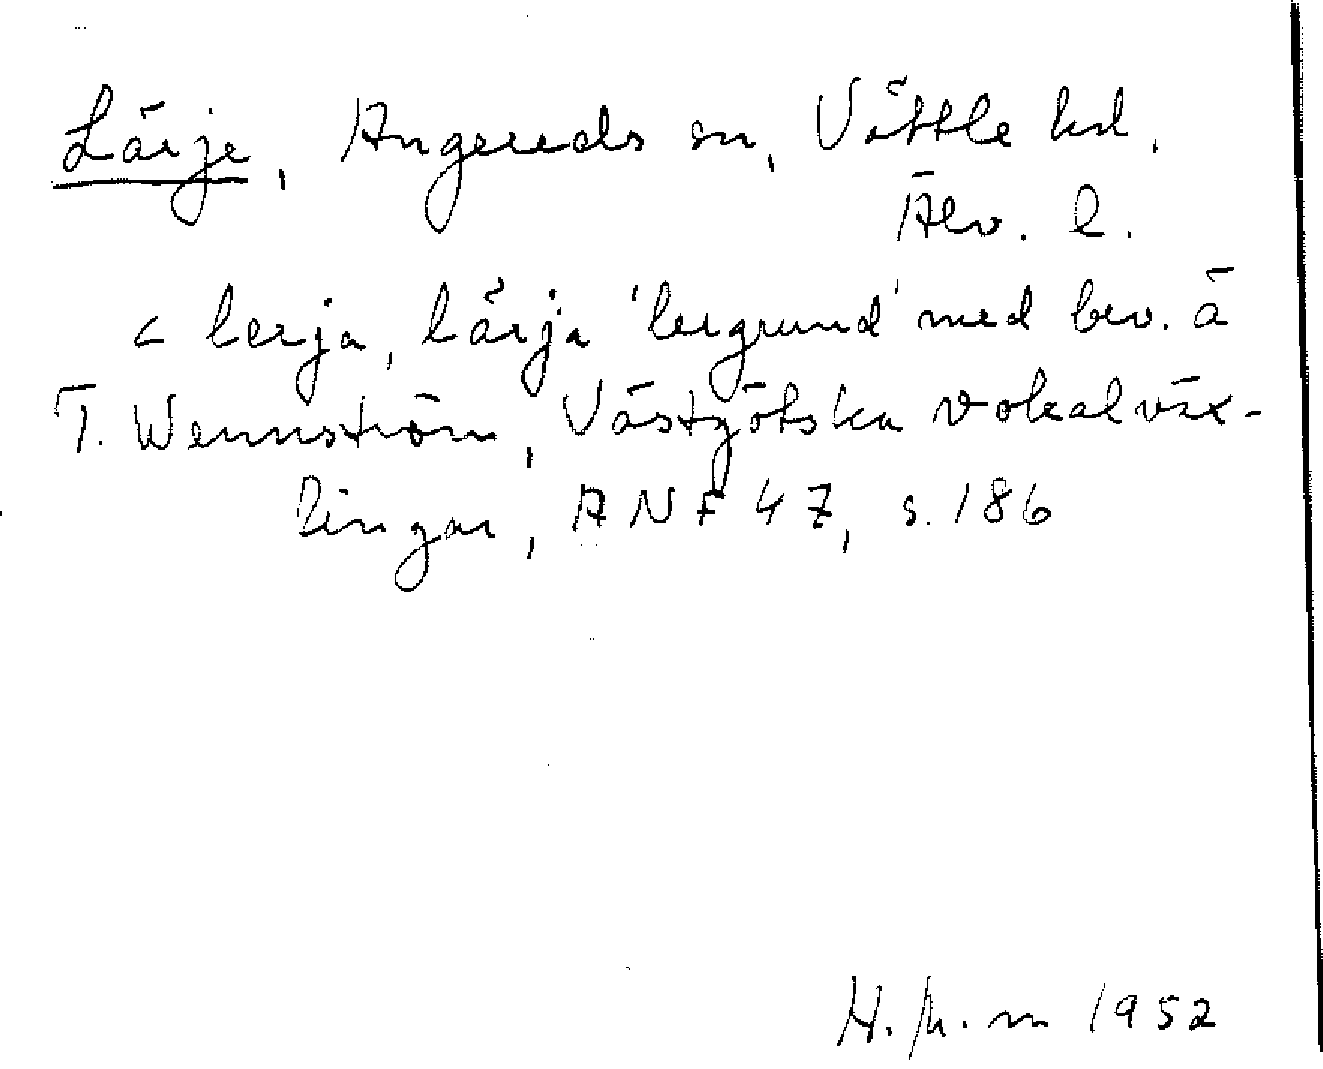 Lärje, Angereds sn, Vättle hd.
Älv. l.
< lerja, lärja 'lergrund' med bev. ä
T. Wennström, Västgötska vokalväx-
lingar, ANF 47, s. 186
1952